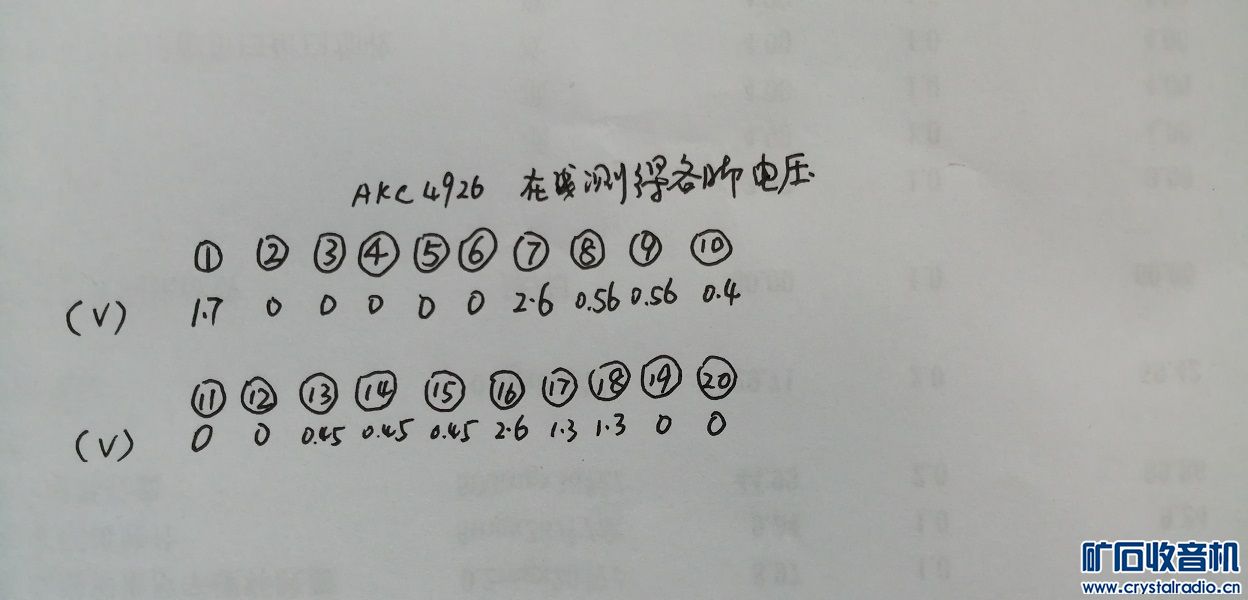 AKC 4926 在线测得各脚电压
① ② ③ ④ ⑤ ⑥ ⑦ ⑧ ⑨ ⑩
(V) 1.7 0 0 0 0 0 2.6 0.56 0.56 0.4
⑪ ⑫ ⑬ ⑭ ⑮ ⑯ ⑰ ⑱ ⑲ ⑳
(V) 0 0 0.45 0.45 0.45 2.6 1.3 1.3 0 0
矿石收音机
www.crystalradio.cn